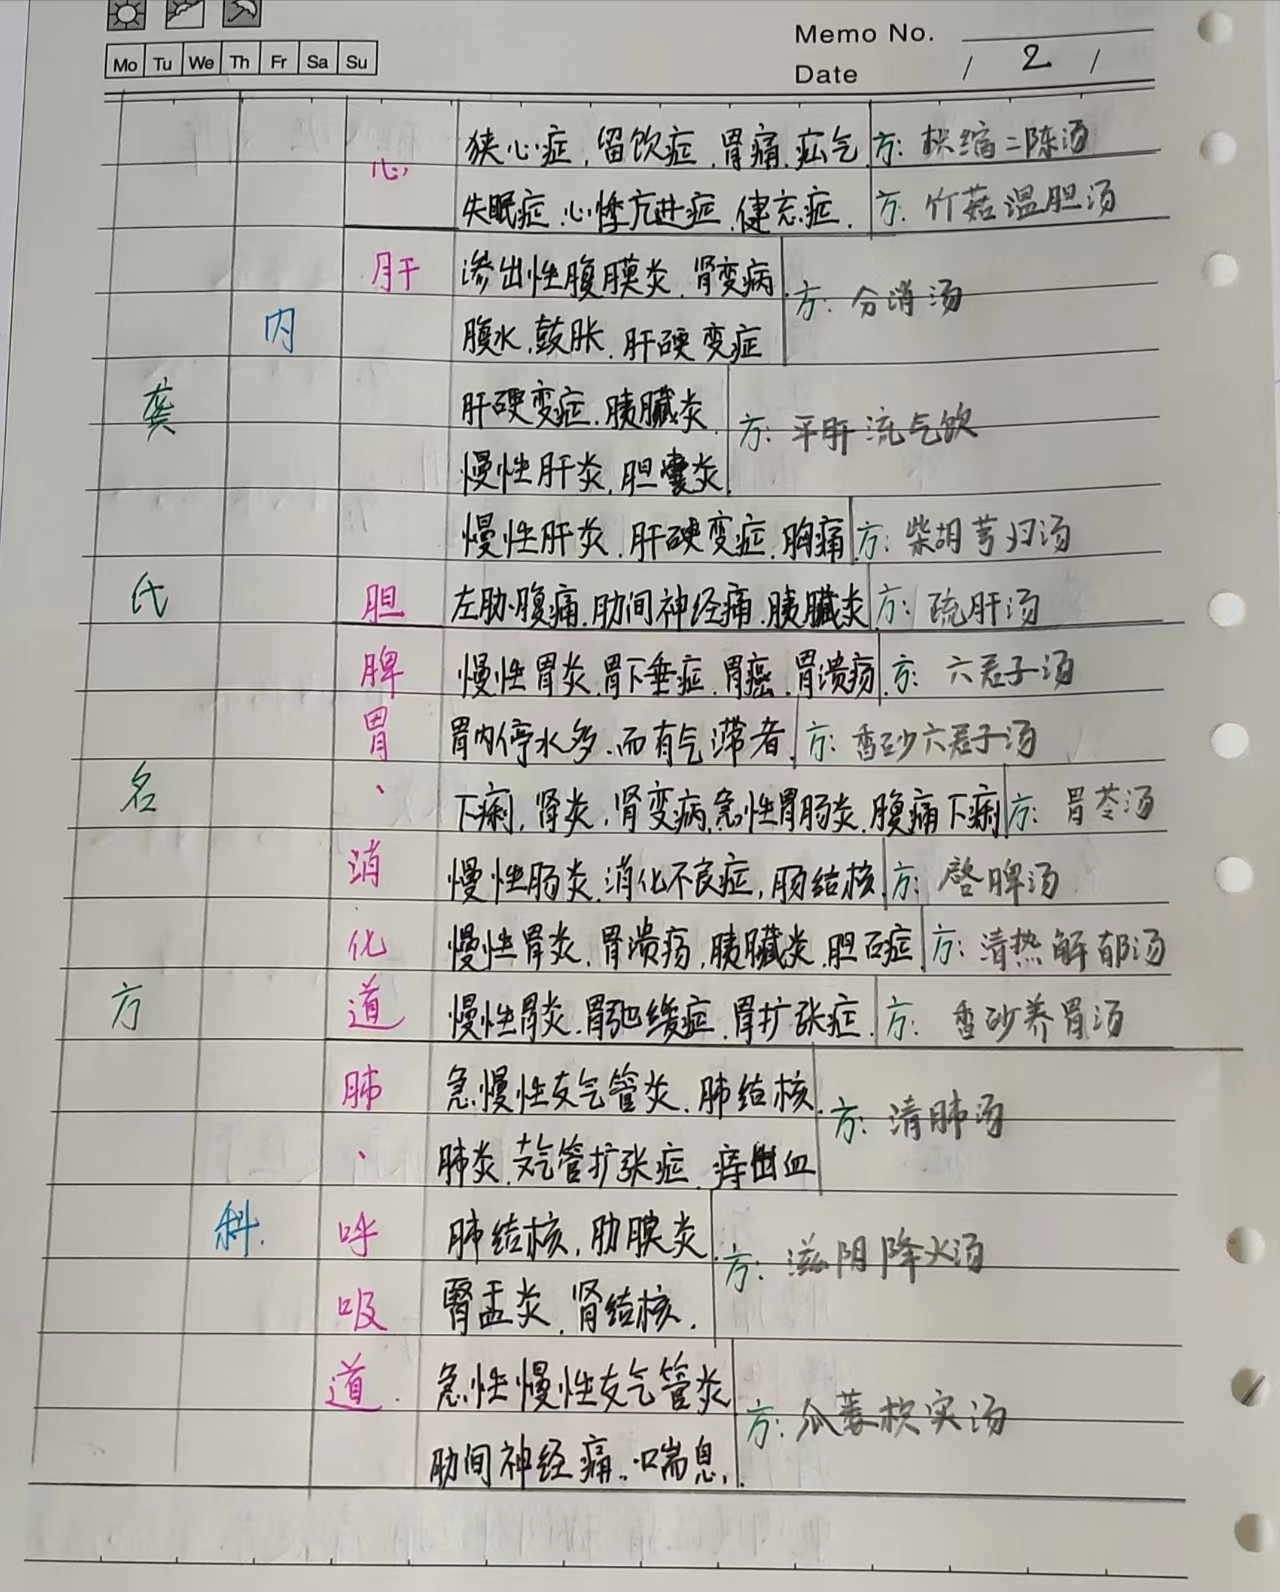 Memo No.
Mo Tu We Th Fr Sa Su
Date / 2 /
心 狭心症、留饮症、胃痛、疝气 方: 枳缩二陈汤
失眠症、心悸亢进症、健忘症、 方: 竹茹温胆汤
肝 渗出性腹膜炎、肾变病 方: 分消汤
内 腹水、鼓胀、肝硬变症
龚 肝硬变症、胰臓炎 方: 平肝流气饮
慢性肝炎、胆囊炎
慢性肝炎、肝硬变症、胸痛 方: 柴胡芎归汤
氏 胆 左肋腹痛、肋间神经痛、胰臓炎 方: 疏肝汤
脾 慢性胃炎、胃下垂症、胃癌、胃溃疡 方: 六君子汤
胃 胃内停水多、而有气滞者 方: 香砂六君子汤
名 、 下痢、肾炎、肾变病、急性胃肠炎、腹痛下痢 方: 胃苓汤
消 慢性肠炎、消化不良症、肠结核 方: 启脾汤
化 慢性胃炎、胃溃疡、胰臓炎、胆石症 方: 清热解郁汤
方 道 慢性胃炎、胃弛缓症、胃扩张症 方: 香砂养胃汤
肺 急慢性支气管炎、肺结核 方: 清肺汤
、 肺炎、支气管扩张症、痔出血
科 呼 肺结核、肋膜炎 方: 滋阴降火汤
吸 腎盂炎、肾结核、
道 急性慢性支气管炎 方: 瓜蒌枳实汤
肋间神经痛、喘息、